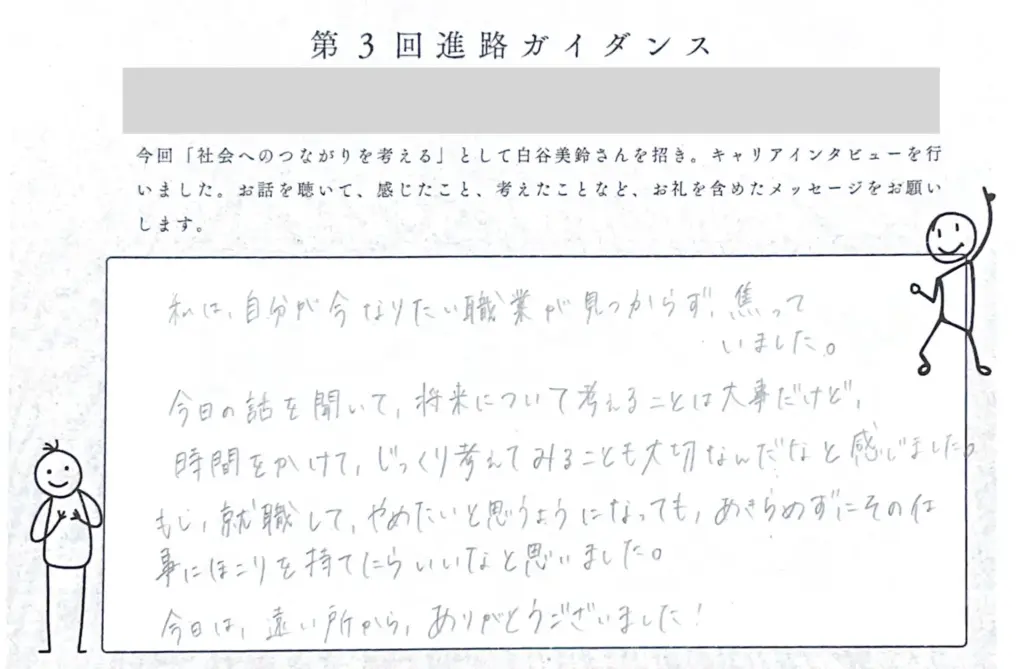 第3回進路ガイダンス
今回「社会へのつながりを考える」として白谷美鈴さんを招き。キャリアインタビューを行
いました。お話を聴いて、感じたこと、考えたことなど、お礼を含めたメッセージをお願い
します。
私は、自分が今なりたい職業が見つからず、焦って
いました。
今日の話を聞いて、将来について考えることは大事だけど、
時間をかけて、じっくり考えてみることも大切なんだなと感じました。
もし、就職して、やめたいと思うようになっても、あきらめずにその仕
事にほこりを持てたらいいなと思いました。
今日は、遠い所から、ありがとうございました！